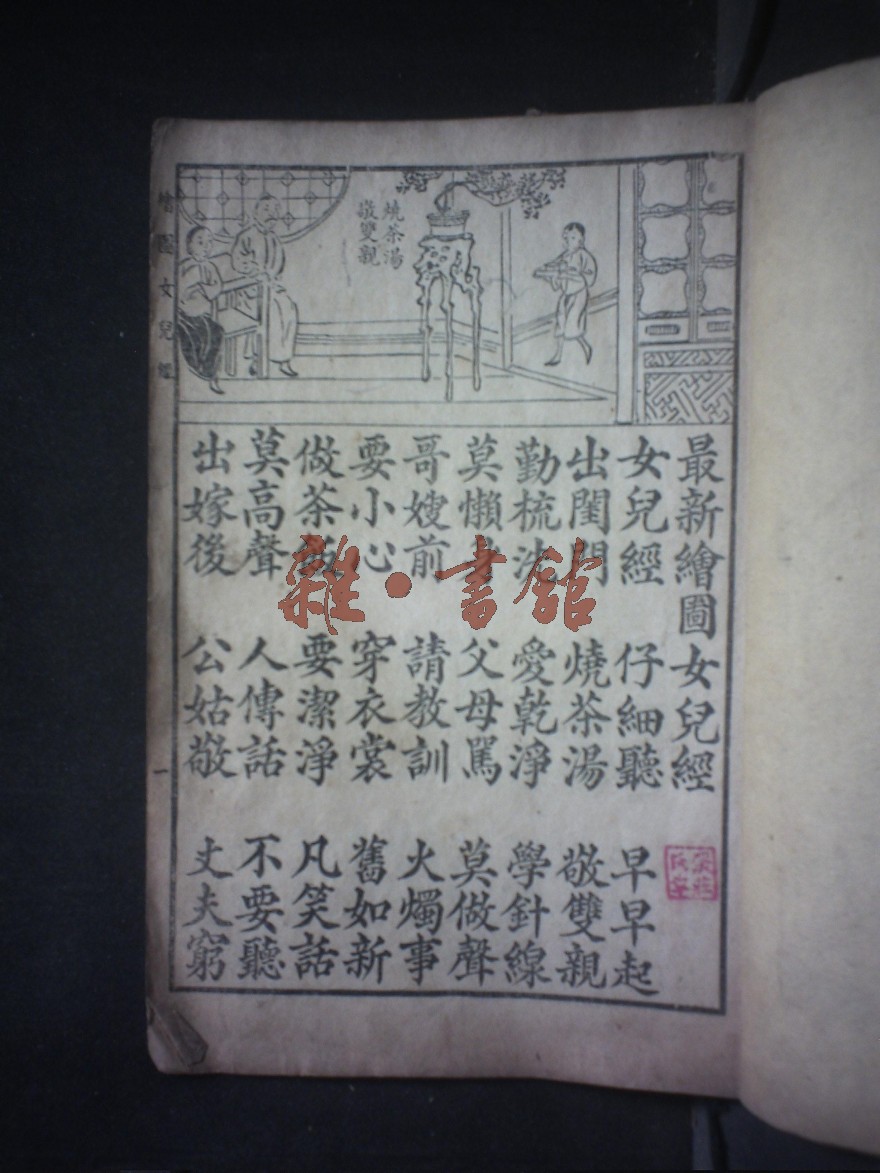 燒茶湯
敬雙親
最新繪圖女兒經
女兒經 仔細聽 早早起
出閨門 燒茶湯 敬雙親
勤梳洗 愛乾淨 學針線
莫懶身 父母罵 莫做聲
哥嫂前 請教訓 火燭事
要小心 穿衣裳 舊如新
做茶飯 要潔淨 凡笑話
莫高聲 人傳話 不要聽
出嫁後 公姑敬 丈夫窮
繪圖女兒經 一
雜·書館